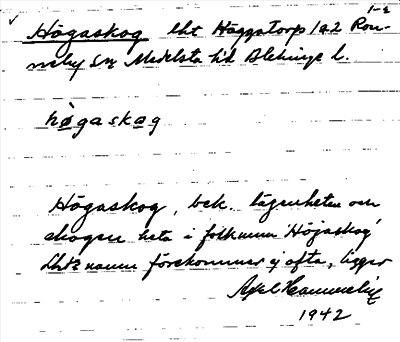 1-2
Högaskog lht Häggatorp 1a2 Ron-
neby sn Medelsta hd Blekinge l.
hògaskog
Högaskog, bek. lägenheten och
skogen heta i folkmun 'Höjaskog'
Lhts namn förekommer ej ofta, ligger
Axel Hammelig
1942